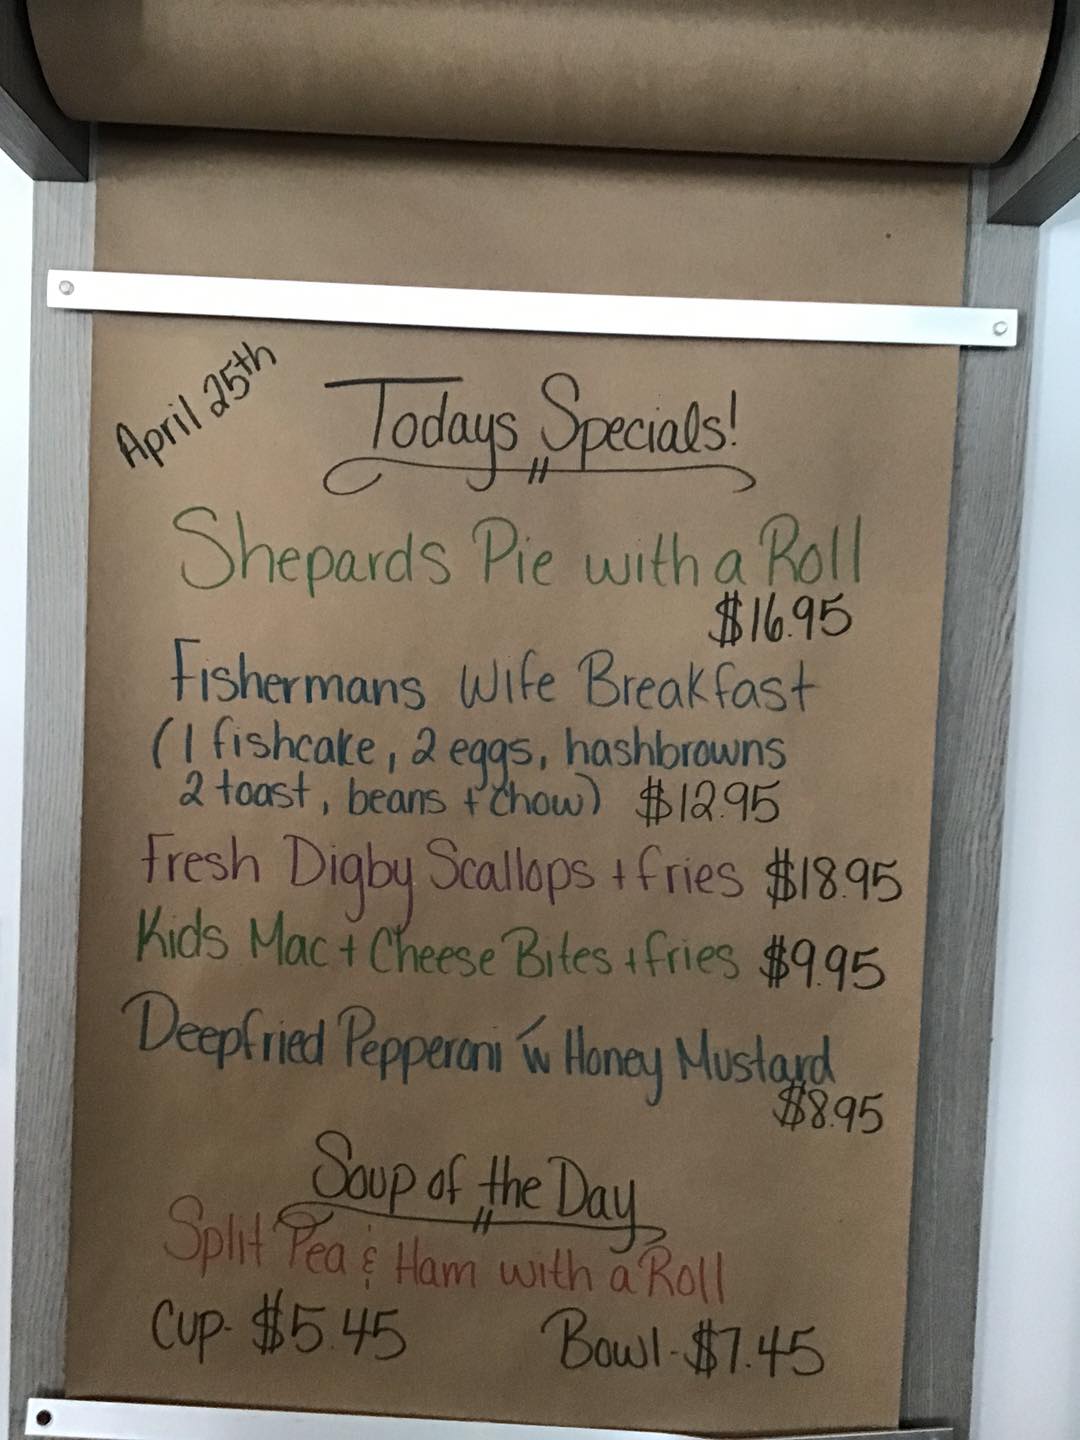 April 25th
Todays Specials!
Shepards Pie with a Roll
$16.95
Fishermans Wife Breakfast
(1 fishcake, 2 eggs, hashbrowns
2 toast, beans + chow) $12.95
Fresh Digby Scallops + fries $18.95
Kids Mac + Cheese Bites + fries $9.95
Deepfried Pepperoni w Honey Mustard
$8.95
Soup of the Day
Split Pea & Ham with a Roll
Cup- $5.45 Bowl-$7.45